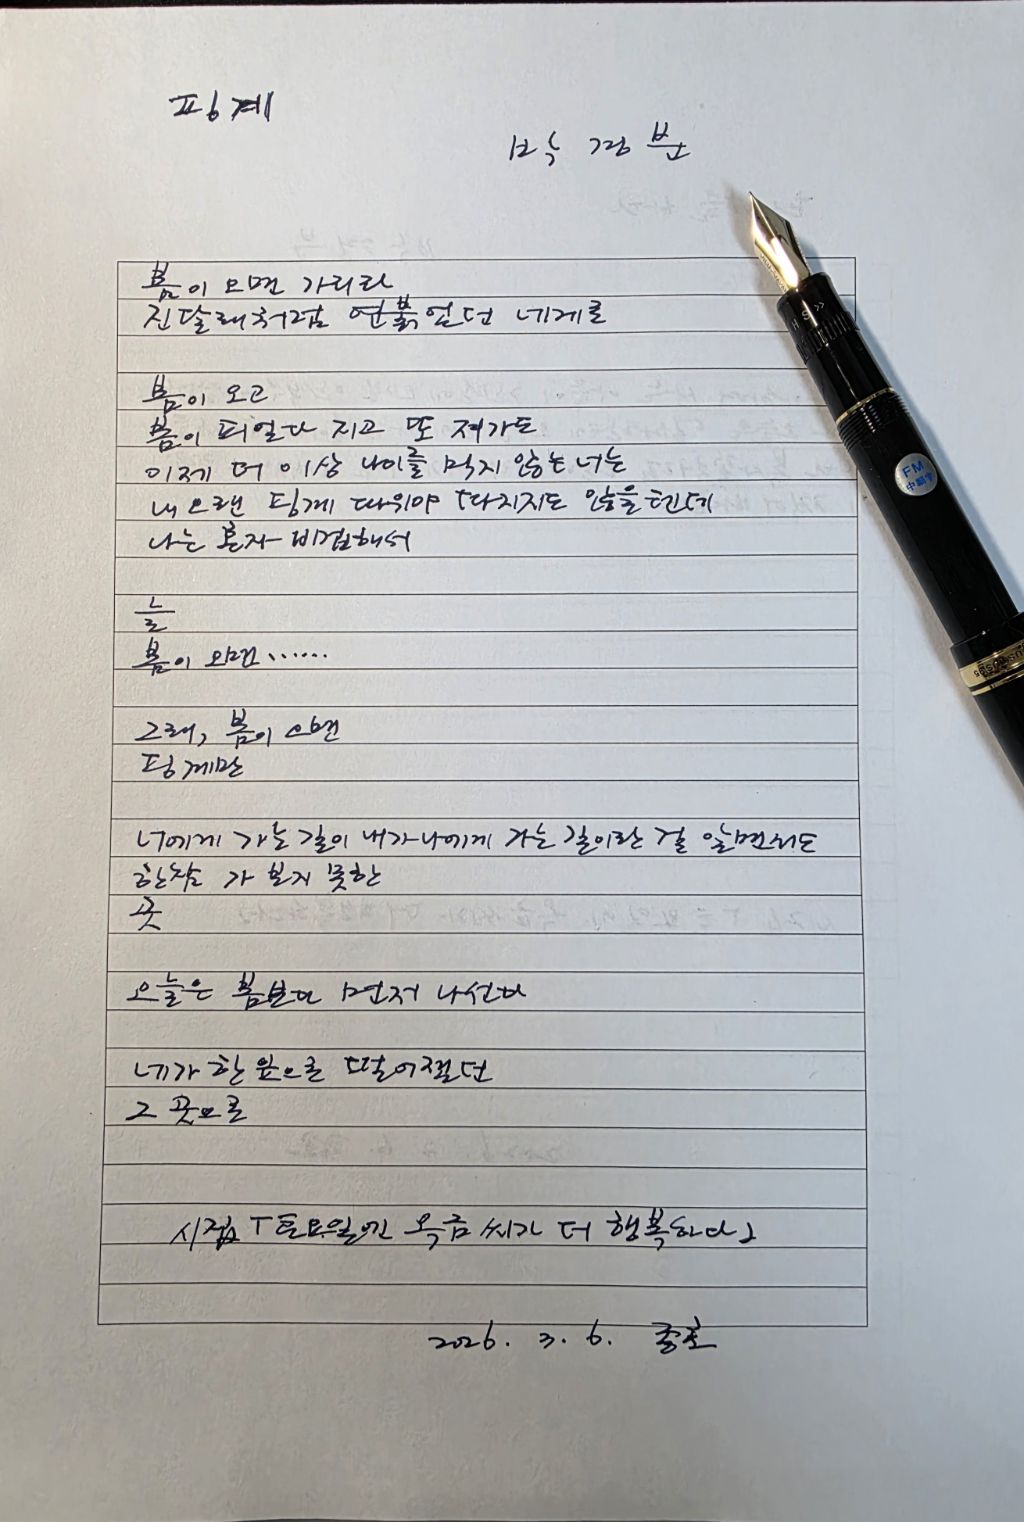 핑계
박경분
봄이 오면 가리라
진달래처럼 연붉었던 네게로
봄이 오고
봄이 피었다 지고 또 져가도
이제 더 이상 나이를 먹지 않는 너는
내 오랜 핑계 따위야 따지지도 않을텐데
나는 혼자 비겁해서
늘
봄이 오면······
그래, 봄이 오면
핑계만
너에게 가는 길이 내가 나에게 가는 길이란 걸 알면서도
한참 가 보지 못한
곳
오늘은 봄보다 먼저 나선다
네가 한 잎으로 떨어졌던
그 곳으로
시집 「토요일엔 옥금씨가 더 행복하다」
2026. 3. 6.
FM
中細字